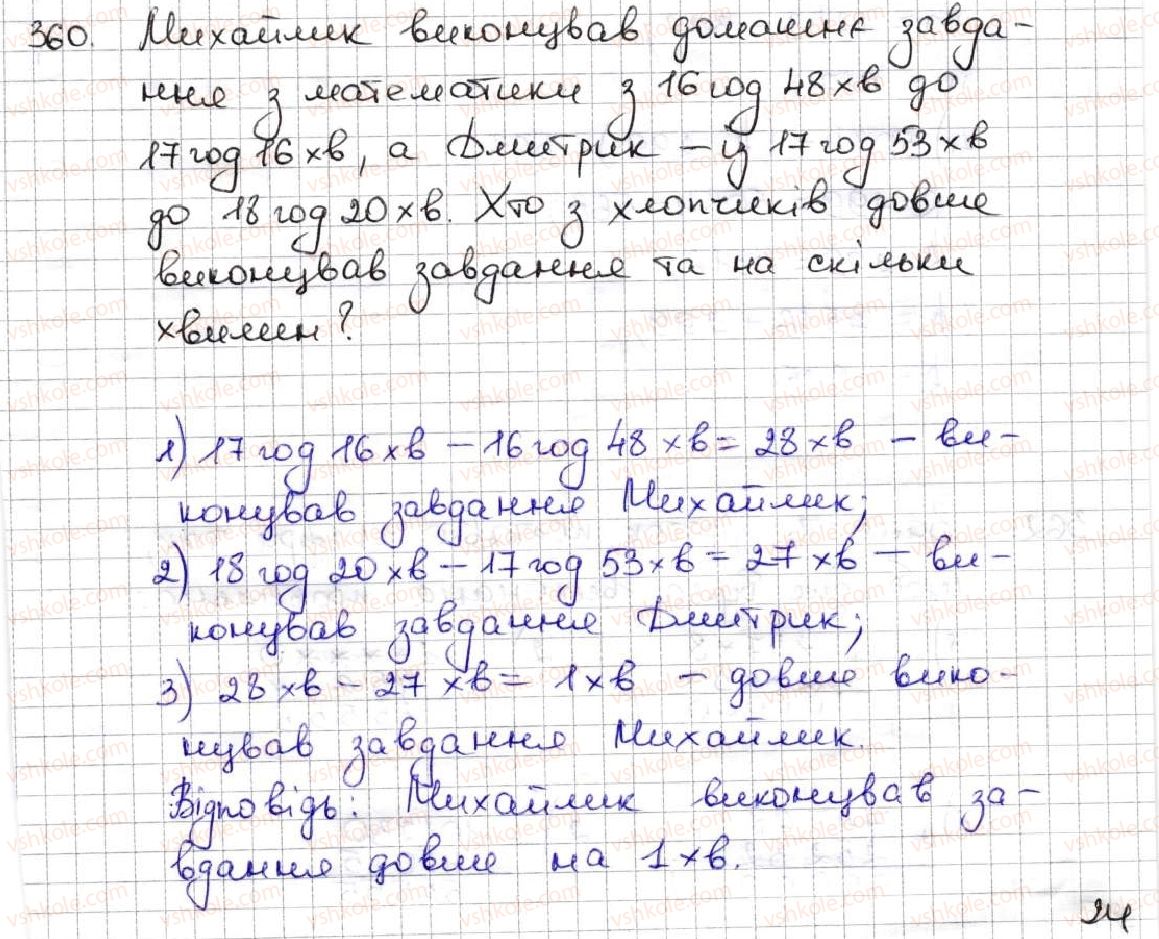 360. Михайлик виконував домашнє завда-
ння з математики з 16 год 48 хв до
17 год 16 хв, а Дмитрик – із 17 год 53 хв
до 18 год 20 хв. Хто з хлопчиків довше
виконував завдання та на скільки
хвилин?
1) 17 год 16 хв – 16 год 48 хв = 28 хв – ви-
конував завдання Михайлик;
2) 18 год 20 хв – 17 год 53 хв = 27 хв – ви-
конував завдання Дмитрик;
3) 28 хв – 27 хв = 1 хв – довше вико-
нував завдання Михайлик.
Відповідь: Михайлик виконував за-
вдання довше на 1 хв.
24